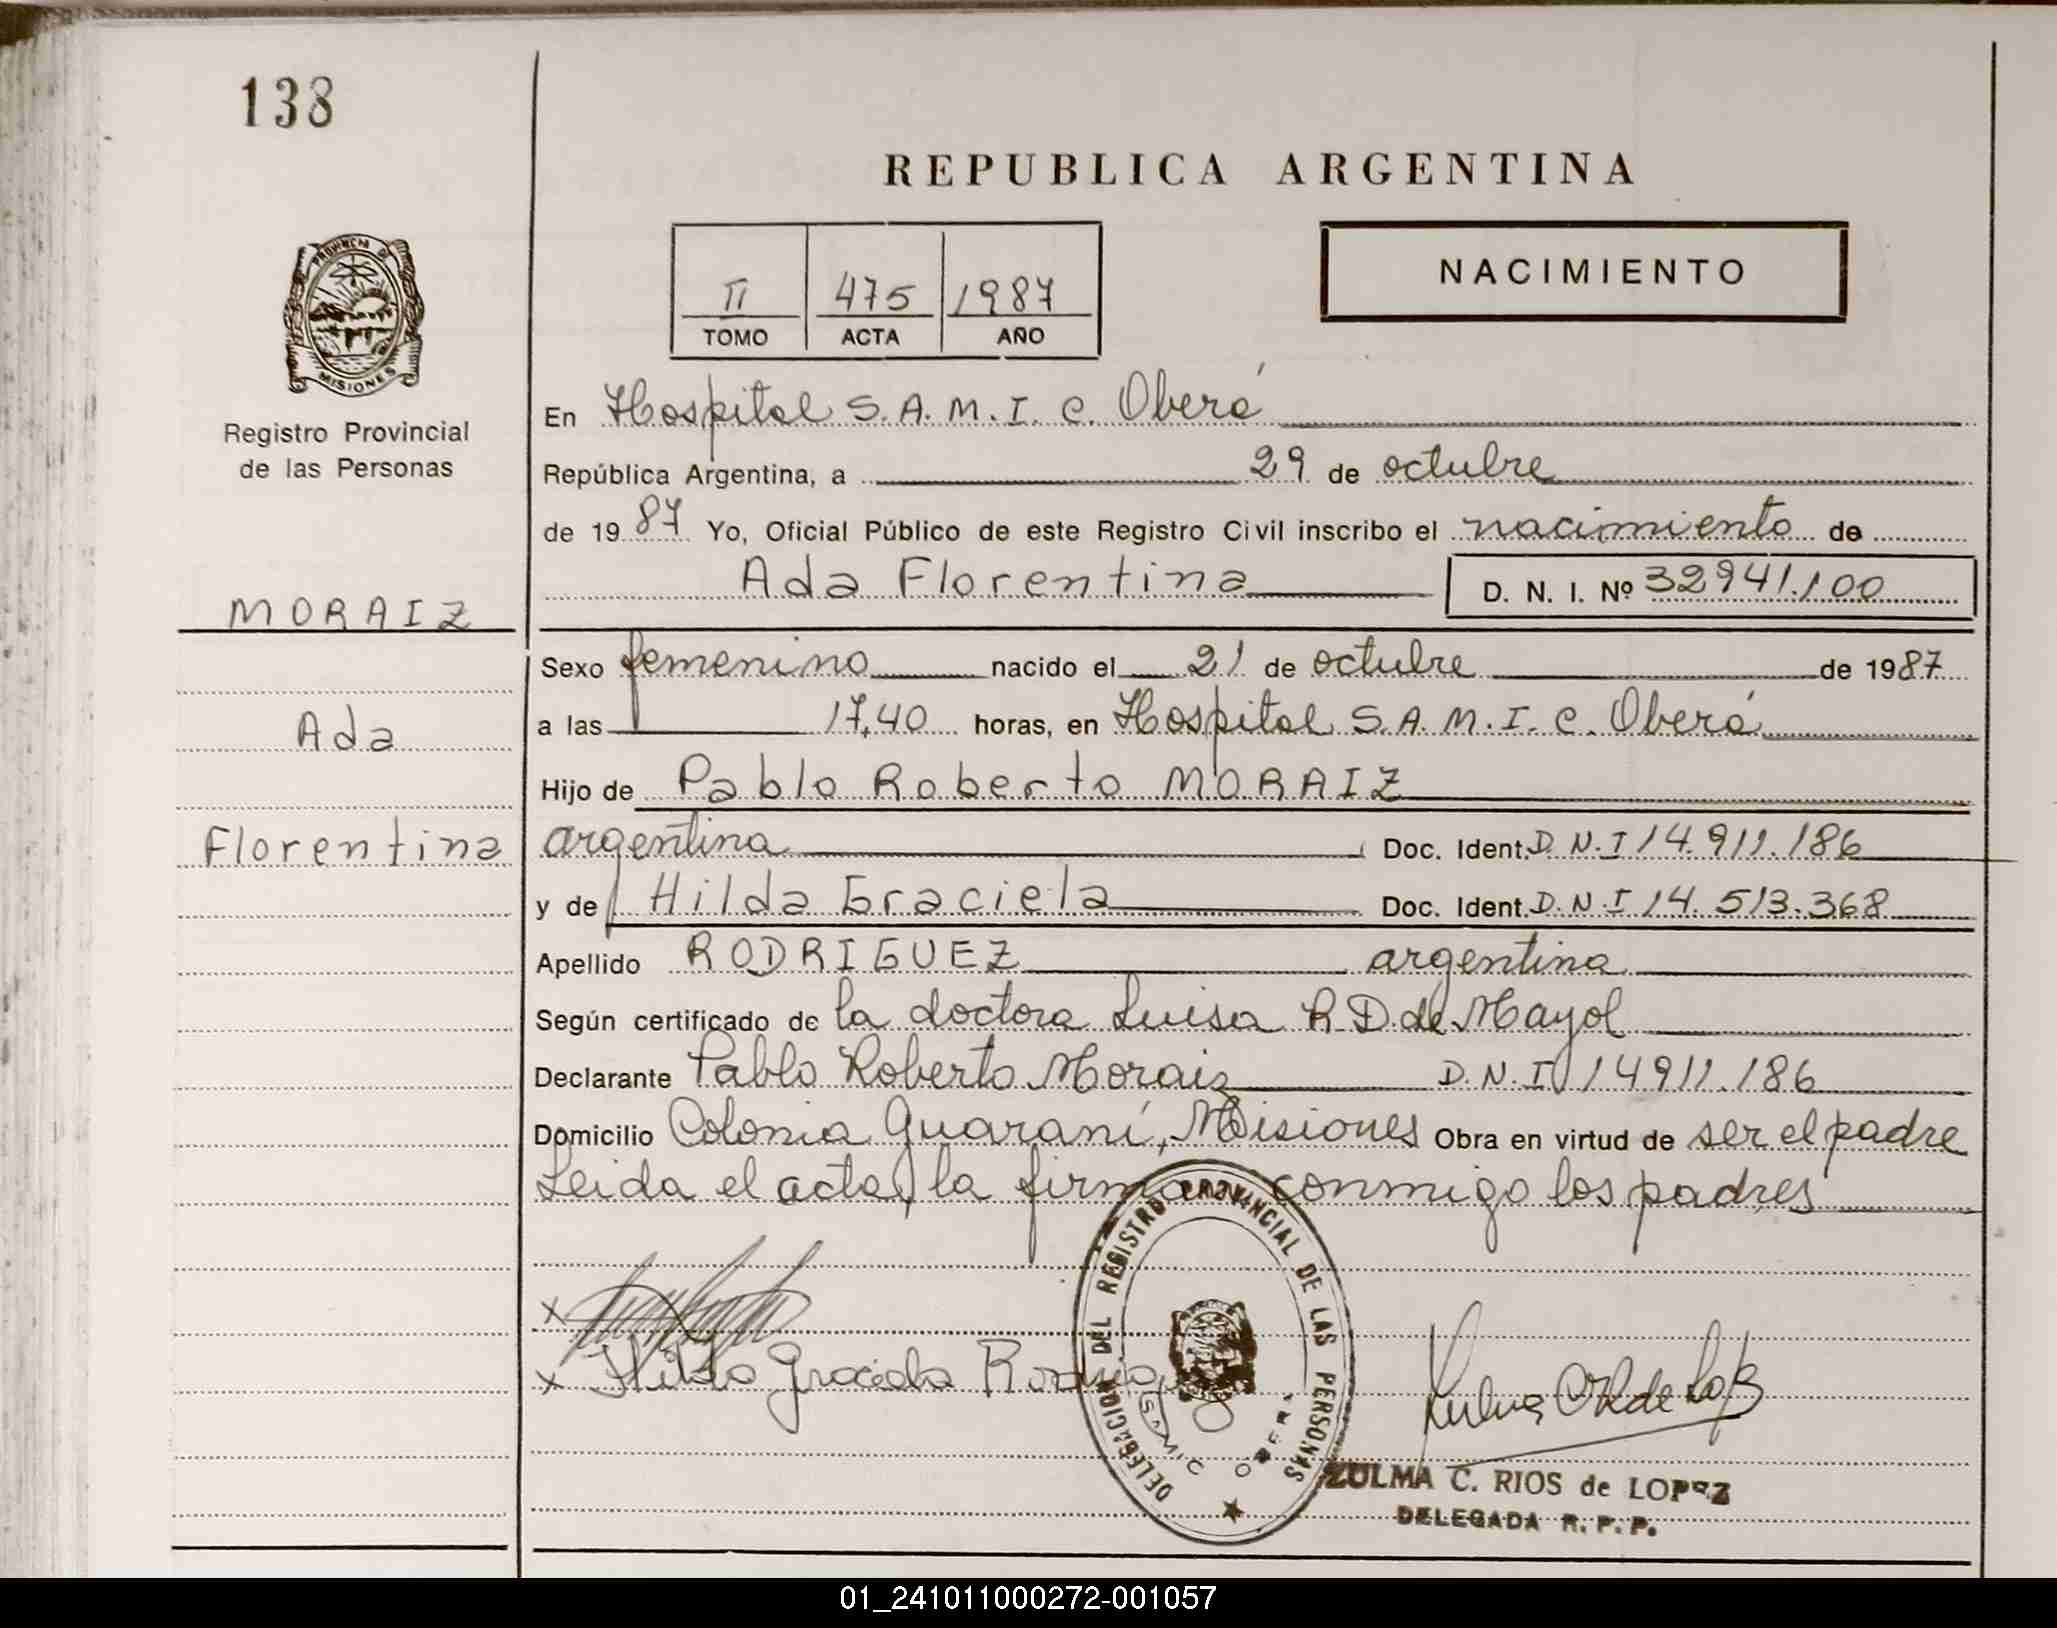 138
REPUBLICA ARGENTINA
PROVINCIA DE
MISIONES
Registro Provincial
de las Personas
II 475 1987
TOMO ACTA AÑO
NACIMIENTO
En Hospital S.A.M.I.C. Oberá
República Argentina, a 29 de octubre
de 1987 Yo, Oficial Público de este Registro Civil inscribo el nacimiento de
Ada Florentina D. N. I. Nº 32941.100
MORAIZ
Sexo femenino nacido el 21 de octubre de 1987
Ada
a las 17,40 horas, en Hospital S.A.M.I.C. Oberá
Hijo de Pablo Roberto MORAIZ
Florentina
argentina Doc. Ident. D.N.I 14.911.186
y de Hilda Graciela Doc. Ident. D.N.I 14.513.368
Apellido RODRIGUEZ argentina
Según certificado de la doctora Luisa R.D. de Mayol
Declarante Pablo Roberto Moraiz D.N.I 14911.186
Domicilio Colonia Guaraní, Misiones Obra en virtud de ser el padre
Leida el acta, la firman conmigo los padres
x
x Hilda Graciela
DELEGACION DEL REGISTRO PROVINCIAL DE LAS PERSONAS
SAMIC OBERA
ZULMA C. RIOS de LOPEZ
DELEGADA R. P. P.
01_241011000272-001057